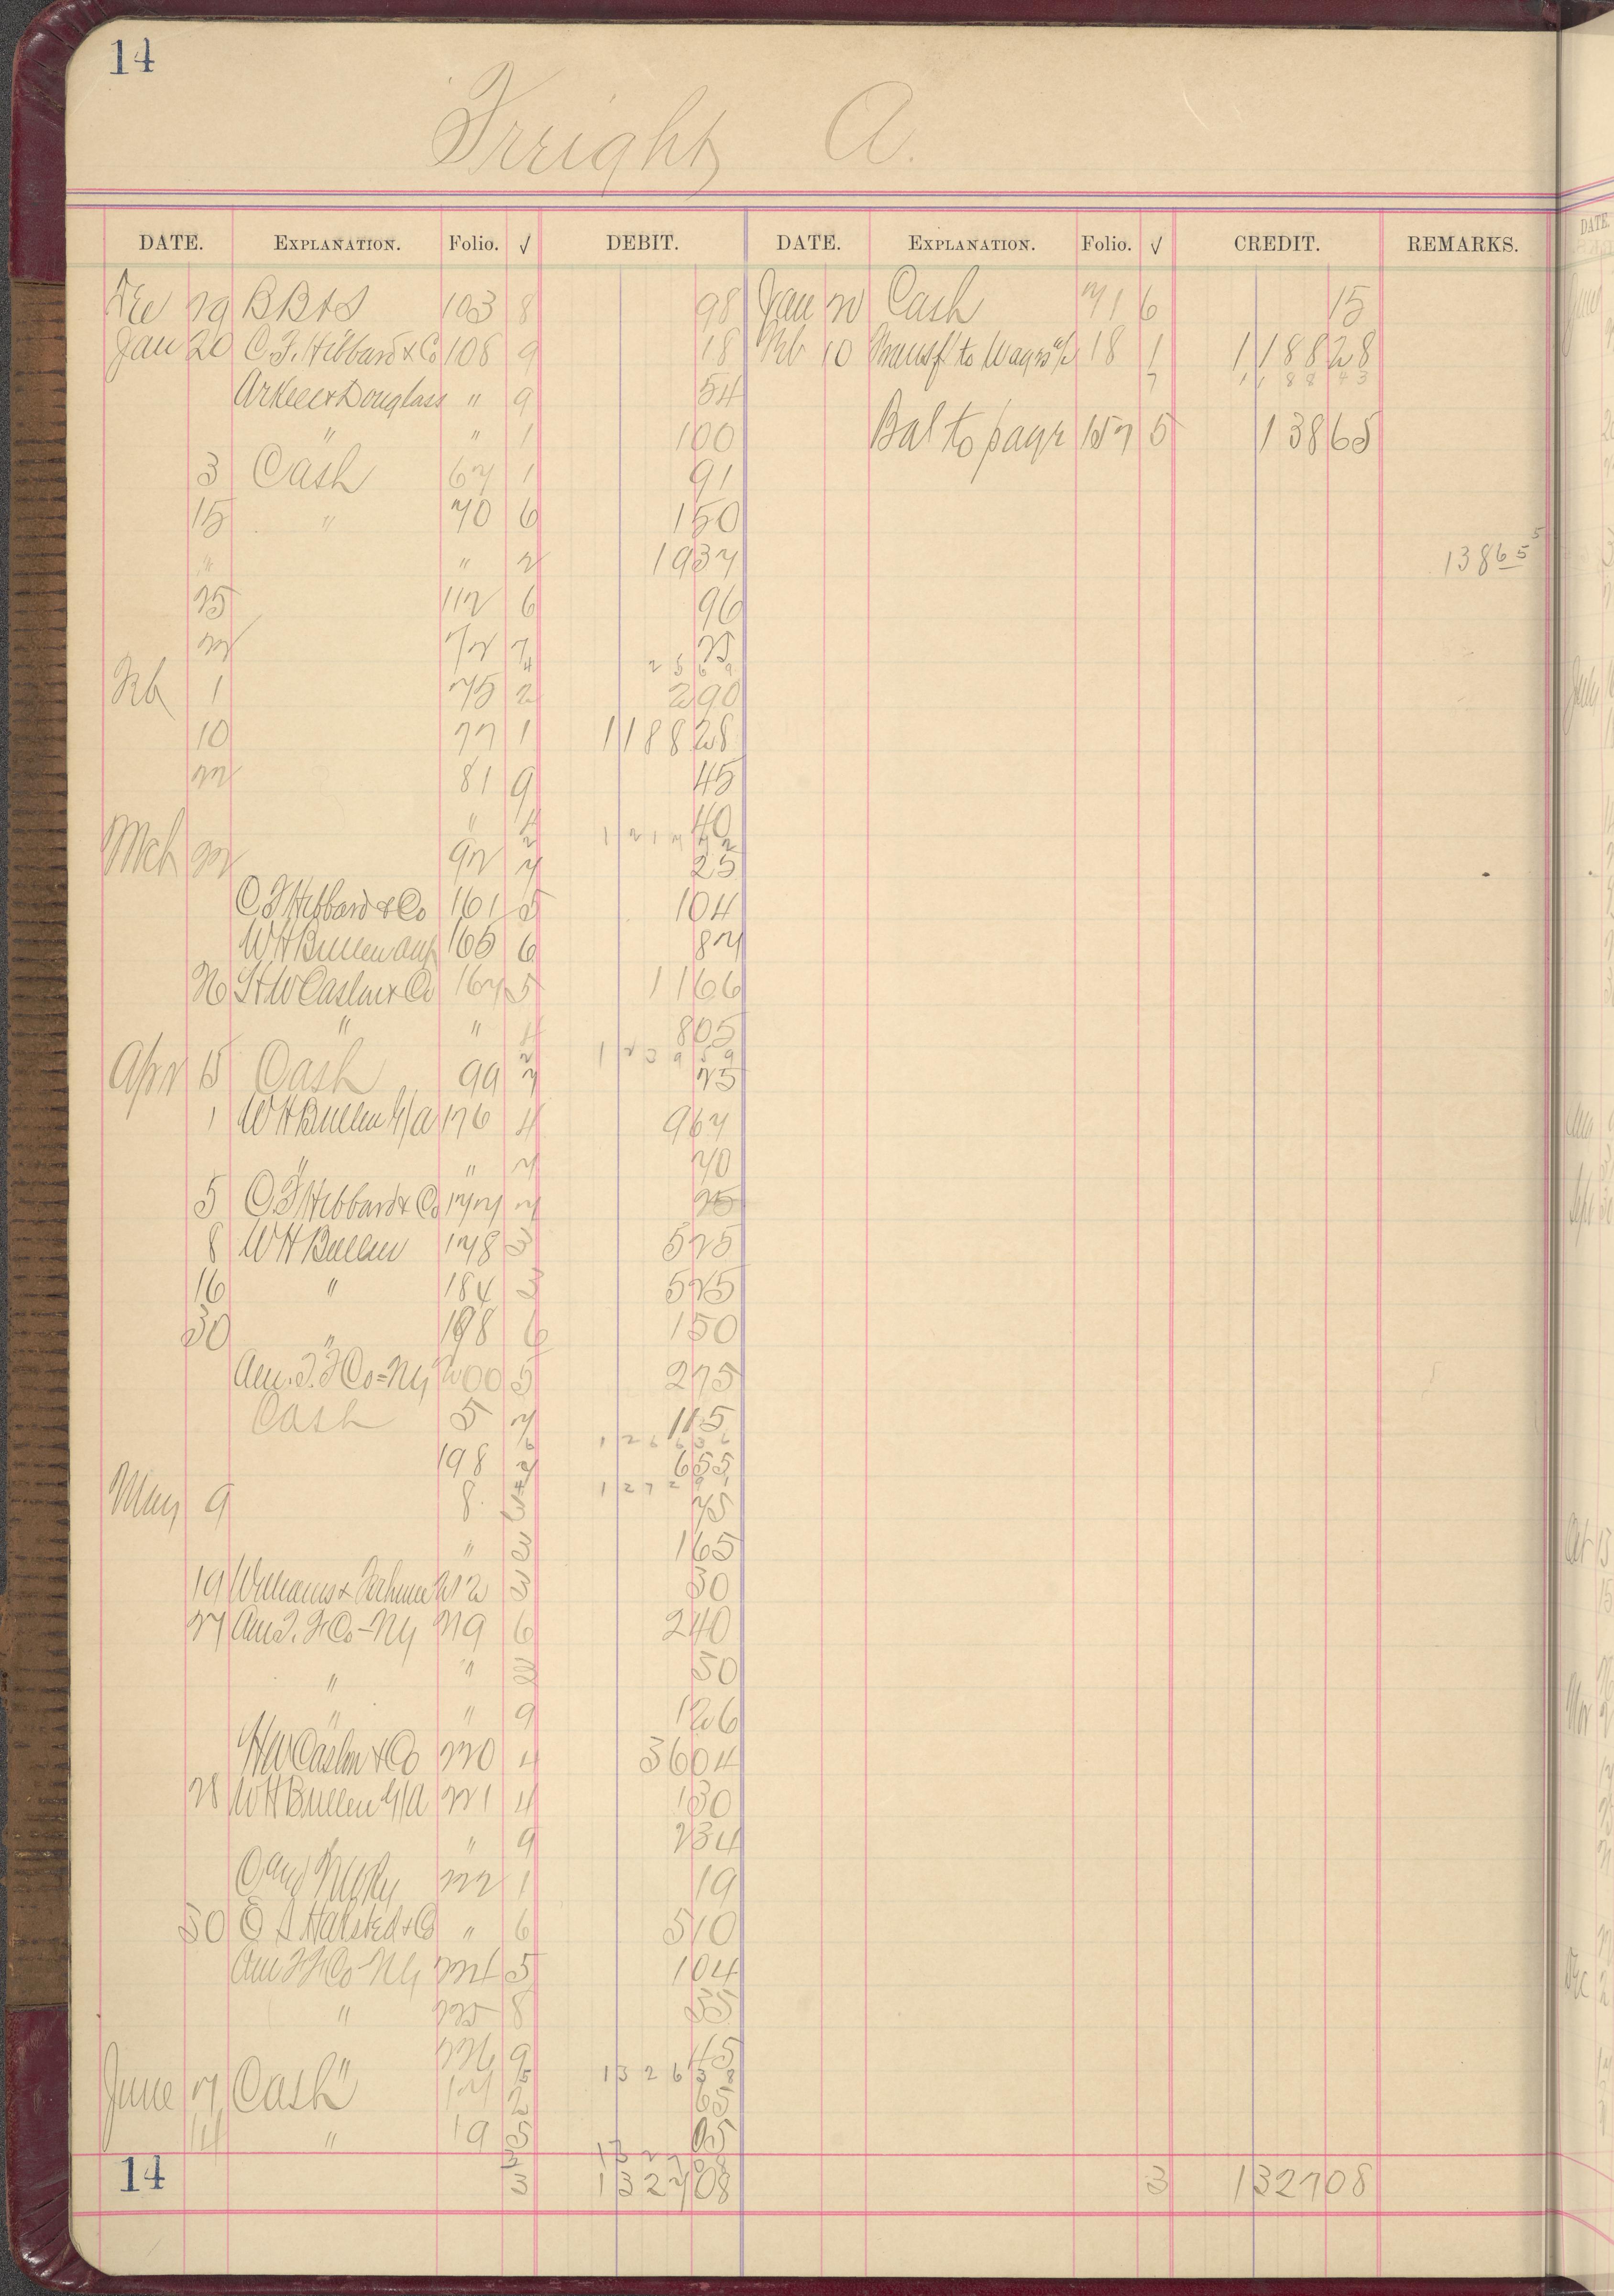 14
Freight A.
DATE. EXPLANATION. Folio. √ DEBIT. DATE. EXPLANATION. Folio. √ CREDIT. REMARKS.
Dec 29 BB&S 103 8 98 Jan 20 Cash 71 6 15
Jan 20 C.F. Hibbard & Co 108 9 18 Feb 10 Transf. to Wages a/c 18 1 1188 28
Arkell & Douglass " 9 54 7 1188 43
" " 1 1 00 Bal to page 157 5 138 65
3 Cash 67 1 91
15 " 70 6 1 50
" " 2 19 37 138 65 5
25 112 6 96
27 72 7 25
4 25 69
Feb 1 75 2 2 90
10 77 1 1188 28
22 81 9 45
" 4 40
2 1217 72
Mch 22 92 7 25
C F Hibbard & Co 161 5 1 04
W H Bullen 165 6 87
26 H W Caslon & Co 167 5 11 66
" " 4 8 05
2 1239 59
Apr 15 Cash 99 7 25
1 W H Bullen G/A 176 4 9 67
" " 7 70
5 C F Hibbard & Co 177 7 25
8 W H Bullen 178 3 5 25
16 " 184 3 5 25
30 " 198 6 1 50
Am. T. F Co = NY 200 5 2 75
Cash 5 7 1 15
6 1266 36
198 7 6 55
1272 91
May 9 8 3 75
" 3 1 65
19 Williams & 212 3 30
27 Am T. F Co - NY 219 6 2 40
" " 50
" " 9 1 26
H W Caslon & Co 220 4 36 04
28 W H Bullen G/A 221 4 1 30
" 9 2 34
222 1 19
30 O S Halsted & Co " 6 5 10
Am T F Co - NY 224 5 1 04
" 225 8 35
" 226 9 45
5 1326 38
June 7 Cash 17 2 65
14 " 19 5 05
3 1327 08
14 3 1327 08 3 1327 08